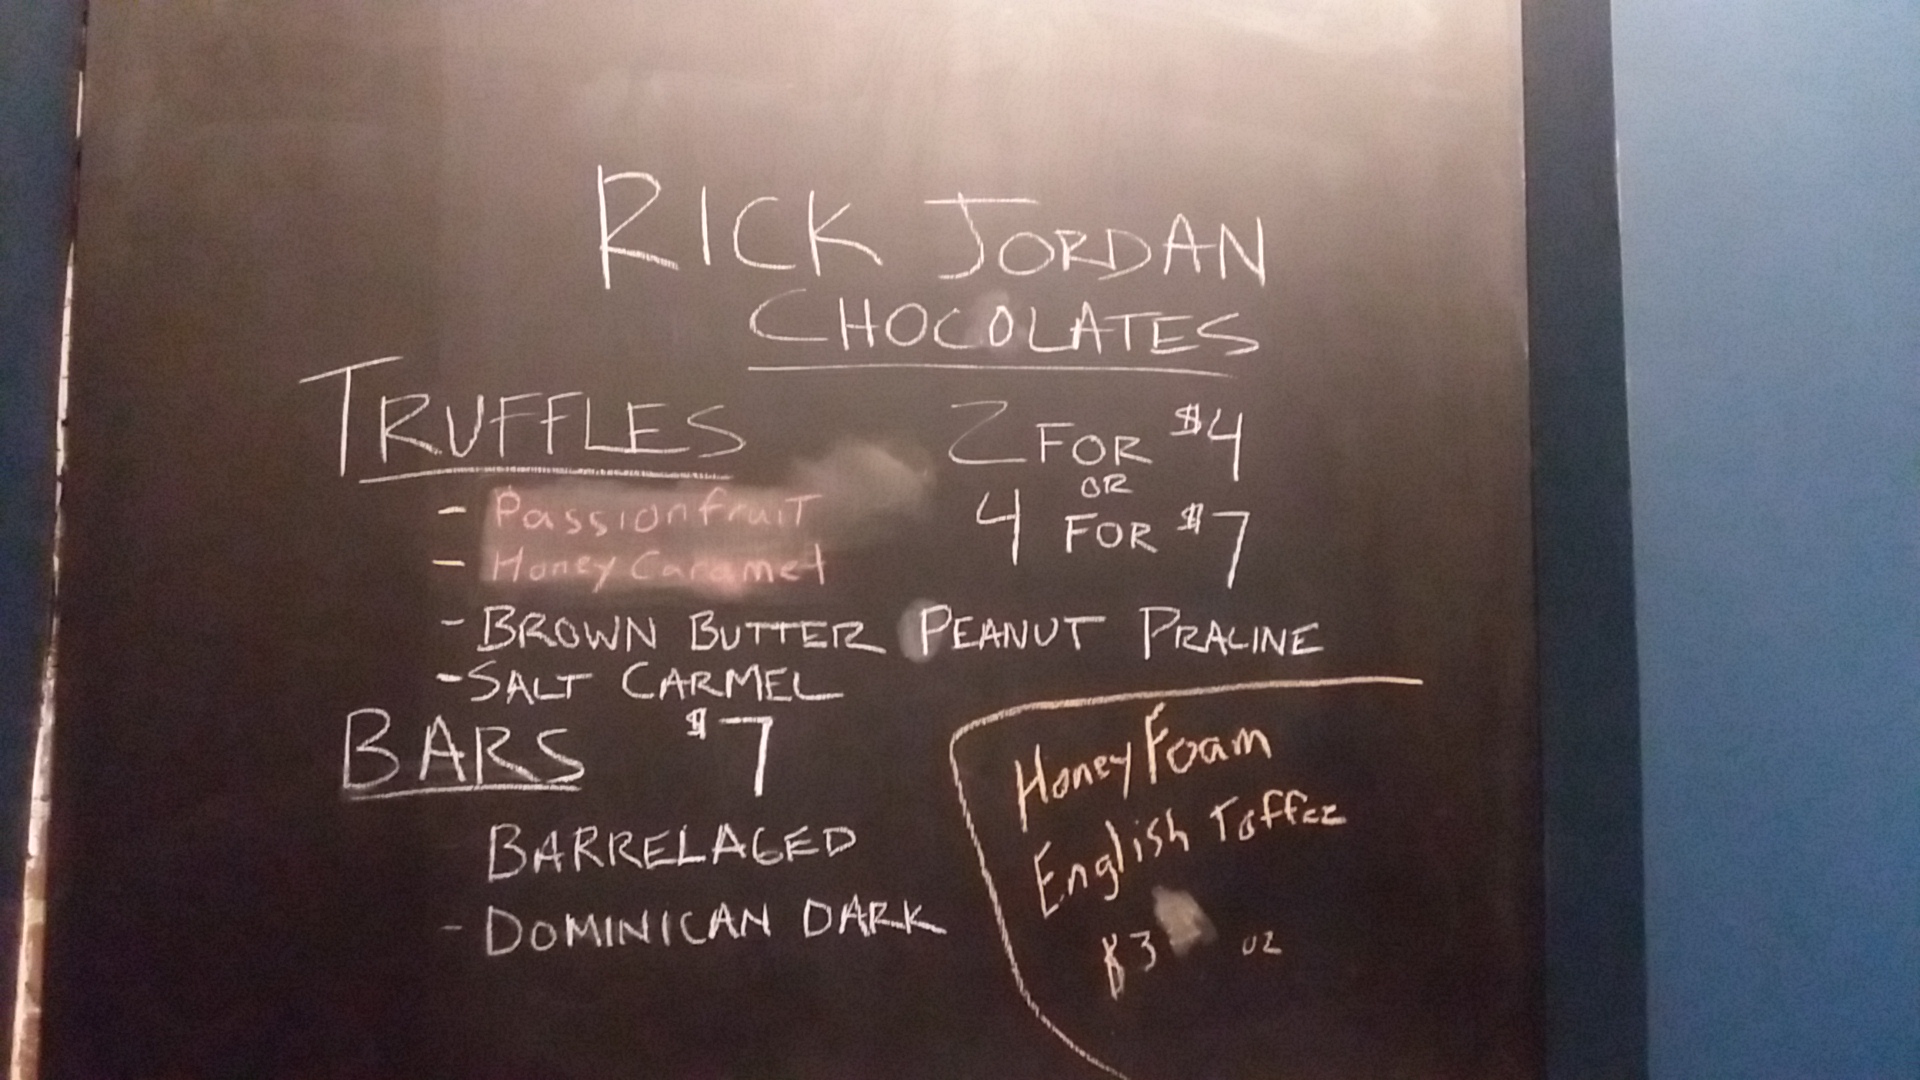 RICK JORDAN
CHOCOLATES
TRUFFLES 2 FOR $4
OR
- Passionfruit 4 FOR $7
- Honey Caramel
- BROWN BUTTER PEANUT PRALINE
- SALT CARMEL
BARS $7
BARRELAGED
- DOMINICAN DARK
Honey Foam
English Toffee
$3 oz